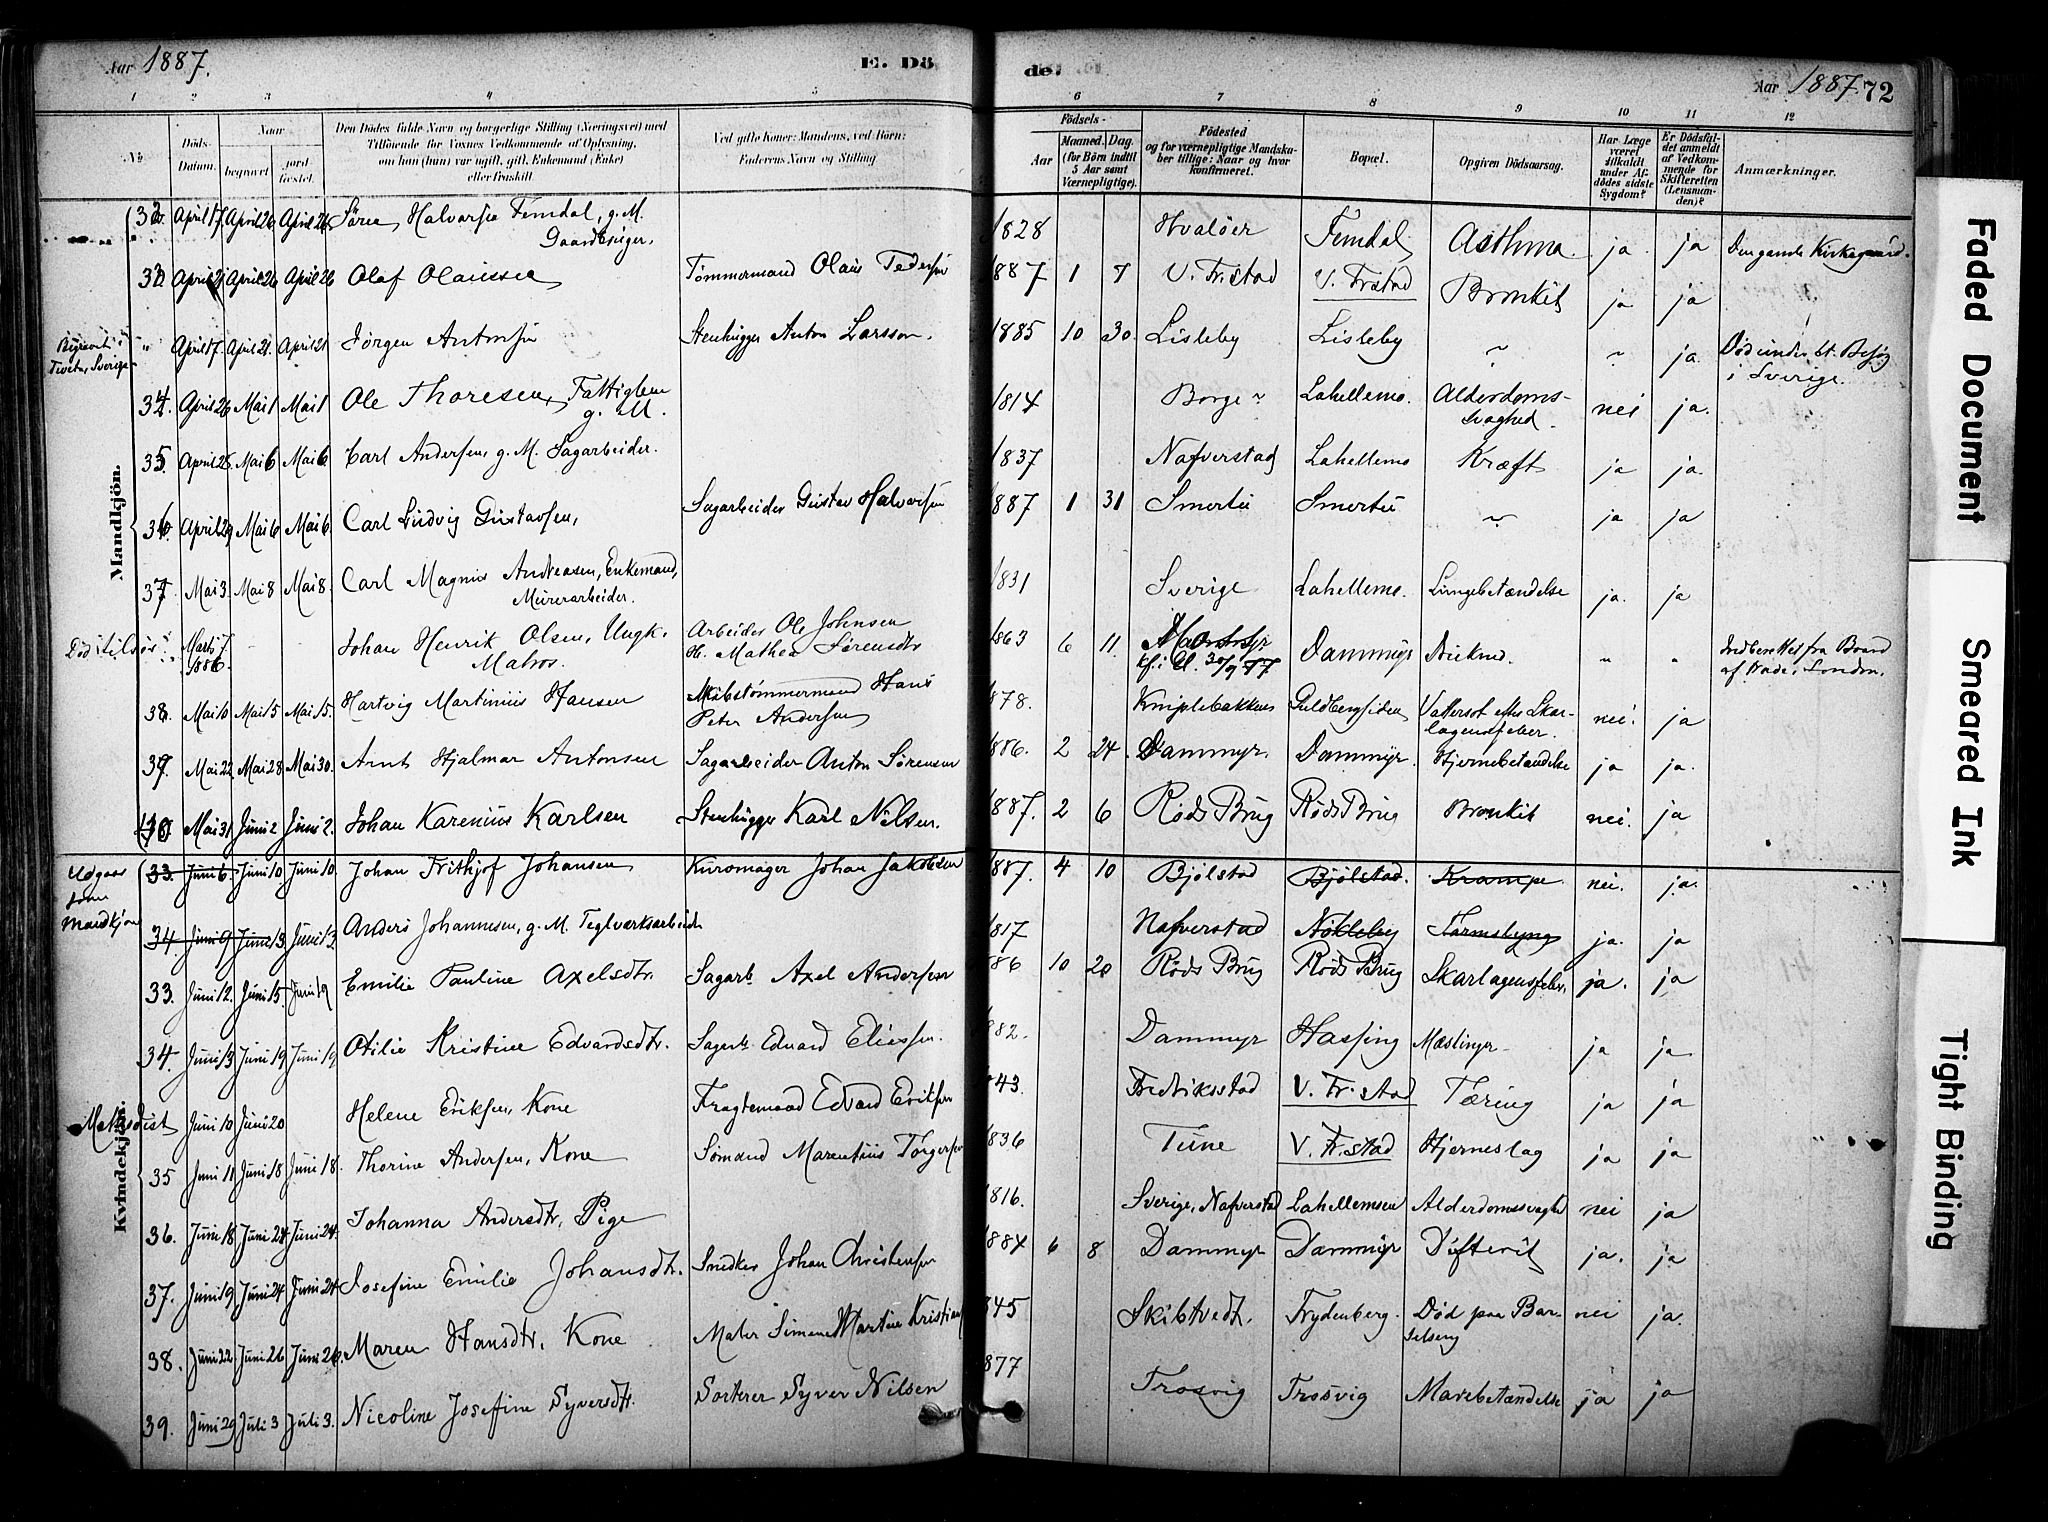 Aar 1887.
E. Dö
de.
Aar 1887.
72
1 2 3 4 5 6 7 8 9 10 11 12
No
Döds-Datum.
Naar
begravet
jordfæstet.
Den Dödes fulde Navn og borgerlige Stilling (Næringsvei) med
Tilföiende for Voxnes Vedkommende af Oplysning,
om han (hun) var ugift, gift, Enkemand (Enke)
eller fraskilt.
Ved gifte Koner: Mandens, ved Börn:
Faderens Navn og Stilling
Födsels-
Aar
Maaned. Dag.
(for Börn indtil
5 Aar samt
Værnepligtige).
Födested
og for værnepligtige Mandska-
ber tillige: Naar og hvor
konfirmeret.
Bopæl.
Opgiven Dödsaarsag.
Har Læge
været
tilkaldt
under Af-
dödes sidste
Sygdom?
Er Dödsfal-
det anmeldt
af Vedkom-
mende for
Skifteretten
(Lensman-
den)?
Anmærkninger.
Mandkjön.
32. April 17. April 26 April 26 Halvorsen Femdal, g. M. Gaardbruger. 1828 Hvaløer Femdal Asthma ja ja Kirkegaard.
April 21 April 26 April 26 Olaf Olaussen Tømmermand Olaus Pedersen 1887 1 7 V. Fr.stad V. Frstad Bronkit ja ja
Sverige " April 17. April 21. April 21 Jørgen Antonsen Stenhugger Anton Larsson. 1885 10 30 Lisleby Lisleby ~ ~ ja. Død under et Besøg i Sverige.
34. April 26 Mai 1 Mai 1 Ole Thoresen, Fattiglem g. M. 1814 Borge Lahellemo. Alderdoms-svaghed. nei ja.
35. April 28 Mai 6 Mai 6 Carl Andersen, g. M. Sagarbeider. 1837 Nafverstad Lahellemo Kræft ja ja.
36. April 29 Mai 6 Mai 6 Carl Ludvig Gustavsen, Sagarbeider Gustav Halvorsen 1887 1 31 Smertu Smertu ~ ja ja
37 Mai 3. Mai 8 Mai 8. Carl Magnus Andreasen, Enkemand, Murerarbeider. 1831 Sverige Lahellemo. Lungebetændelse ja. ja
Marts 7. 1886. Johan Henrik Olsen, Ungk. Matros. Arbeider Ole Johnsen H. Mathea Sørensdtr 1863 6 11. 30/9 77 Dammyr Druknet. " " Indberettet fra Board of Trade i London.
38. Mai 10 Mai 15 Mai 15. Hartvig Martinius Hansen Skibstømmermand Hans Peter Andersen 1878. Kniplebakken Guldbergsiden Vattersot efter Skar-lagensfeber. nei. ja
39. Mai 22 Mai 28 Mai 30. Arnt Hjalmar Antonsen Sagarbeider Anton Sørensen 1886. 2 24. Dammyr. Dammyr. Hjernebetændelse ja ja.
40 Mai 31 Juni 2 Juni 2. Johan Karenius Karlsen Stenhugger Karl Nilsen. 1887. 2 6 Røds Brug Røds Brug Bronkit nei. ja
Udgaar
som
Mandkjøn
33. Juni 6. Juni 10 Juni 10. Johan Frithjof Johansen Kurvmager Johan Jakobsen 1887. 4 10 Bjølstad Bjølstad. Krampe nei. ja.
34. Juni 9 Juni 13. Juni 13. Anders Johannesen, g. M. Teglværksarbeider 1817 Nafverstad Nøkleby Tarmslyng ja. ja
Kvindekjön.
33. Juni 12. Juni 15 Juni 19 Emilie Pauline Axelsdtr. Sagarb. Axel Andersen 86 10 20 Røds Brug Røds Brug Skarlagensfeber. ja. ja
34. Juni 13 Juni 19 Juni 19 Otilie Kristine Edvardsdtr. Sagarb. Edvard Eliesen. 882. Dammyr Hassing Mæslinger ja ja
Methodist Juni 10 Juni 20 Helene Eriksen, Kone Fragtemand Edvard Eriksen 43. Fredriksstad V. Fr.stad Tæring ja ja
35 Juni 11 Juni 18 Juni 18. Thorine Andersen, Kone Sømand Marentius Torgersen 836 Tune V. Fr.stad Hjerneslag ja ja
36. Juni 18 Juni 24 Juni 24. Johanna Andersdtr. Pige 816. Sverige, Nafverstad Lahellemsen Alderdomssvaghd nei ja
37. Juni 19 Juni 24 Juni 24 Josefine Emilie Johansdtr. Snedker Johan Christensen 884 6 8 Dammyr Dammyr Difterit ja. ja
38. Juni 22 Juni 26 Juni 26. Maren Hansdtr. Kone Maler Simen Martin Kristian 845 Skibtvedt. Frydenberg. Død paa Bar-selseng nei ja.
39. Juni 29 Juli 3 Juli 3. Nicoline Josefine Syversdtr. Sorterer Syver Nilsen 877 Trosvig Trosvig Mavebetændelse ja ja
Faded Document
Smeared Ink
Tight Binding